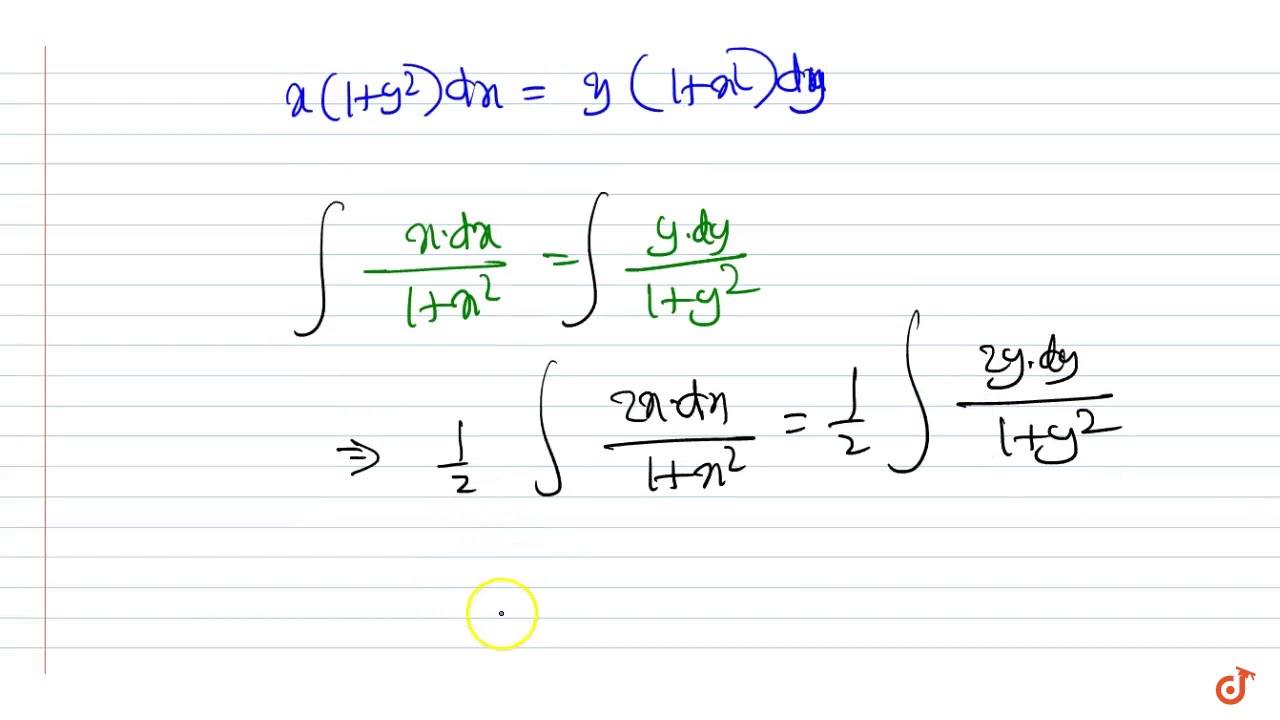 x(1+y²)dx = y(1+x²)dy
∫ x.dx/1+x² = ∫ y.dy/1+y²
⇒ 1/2 ∫ 2x.dx/1+x² = 1/2 ∫ 2y.dy/1+y²